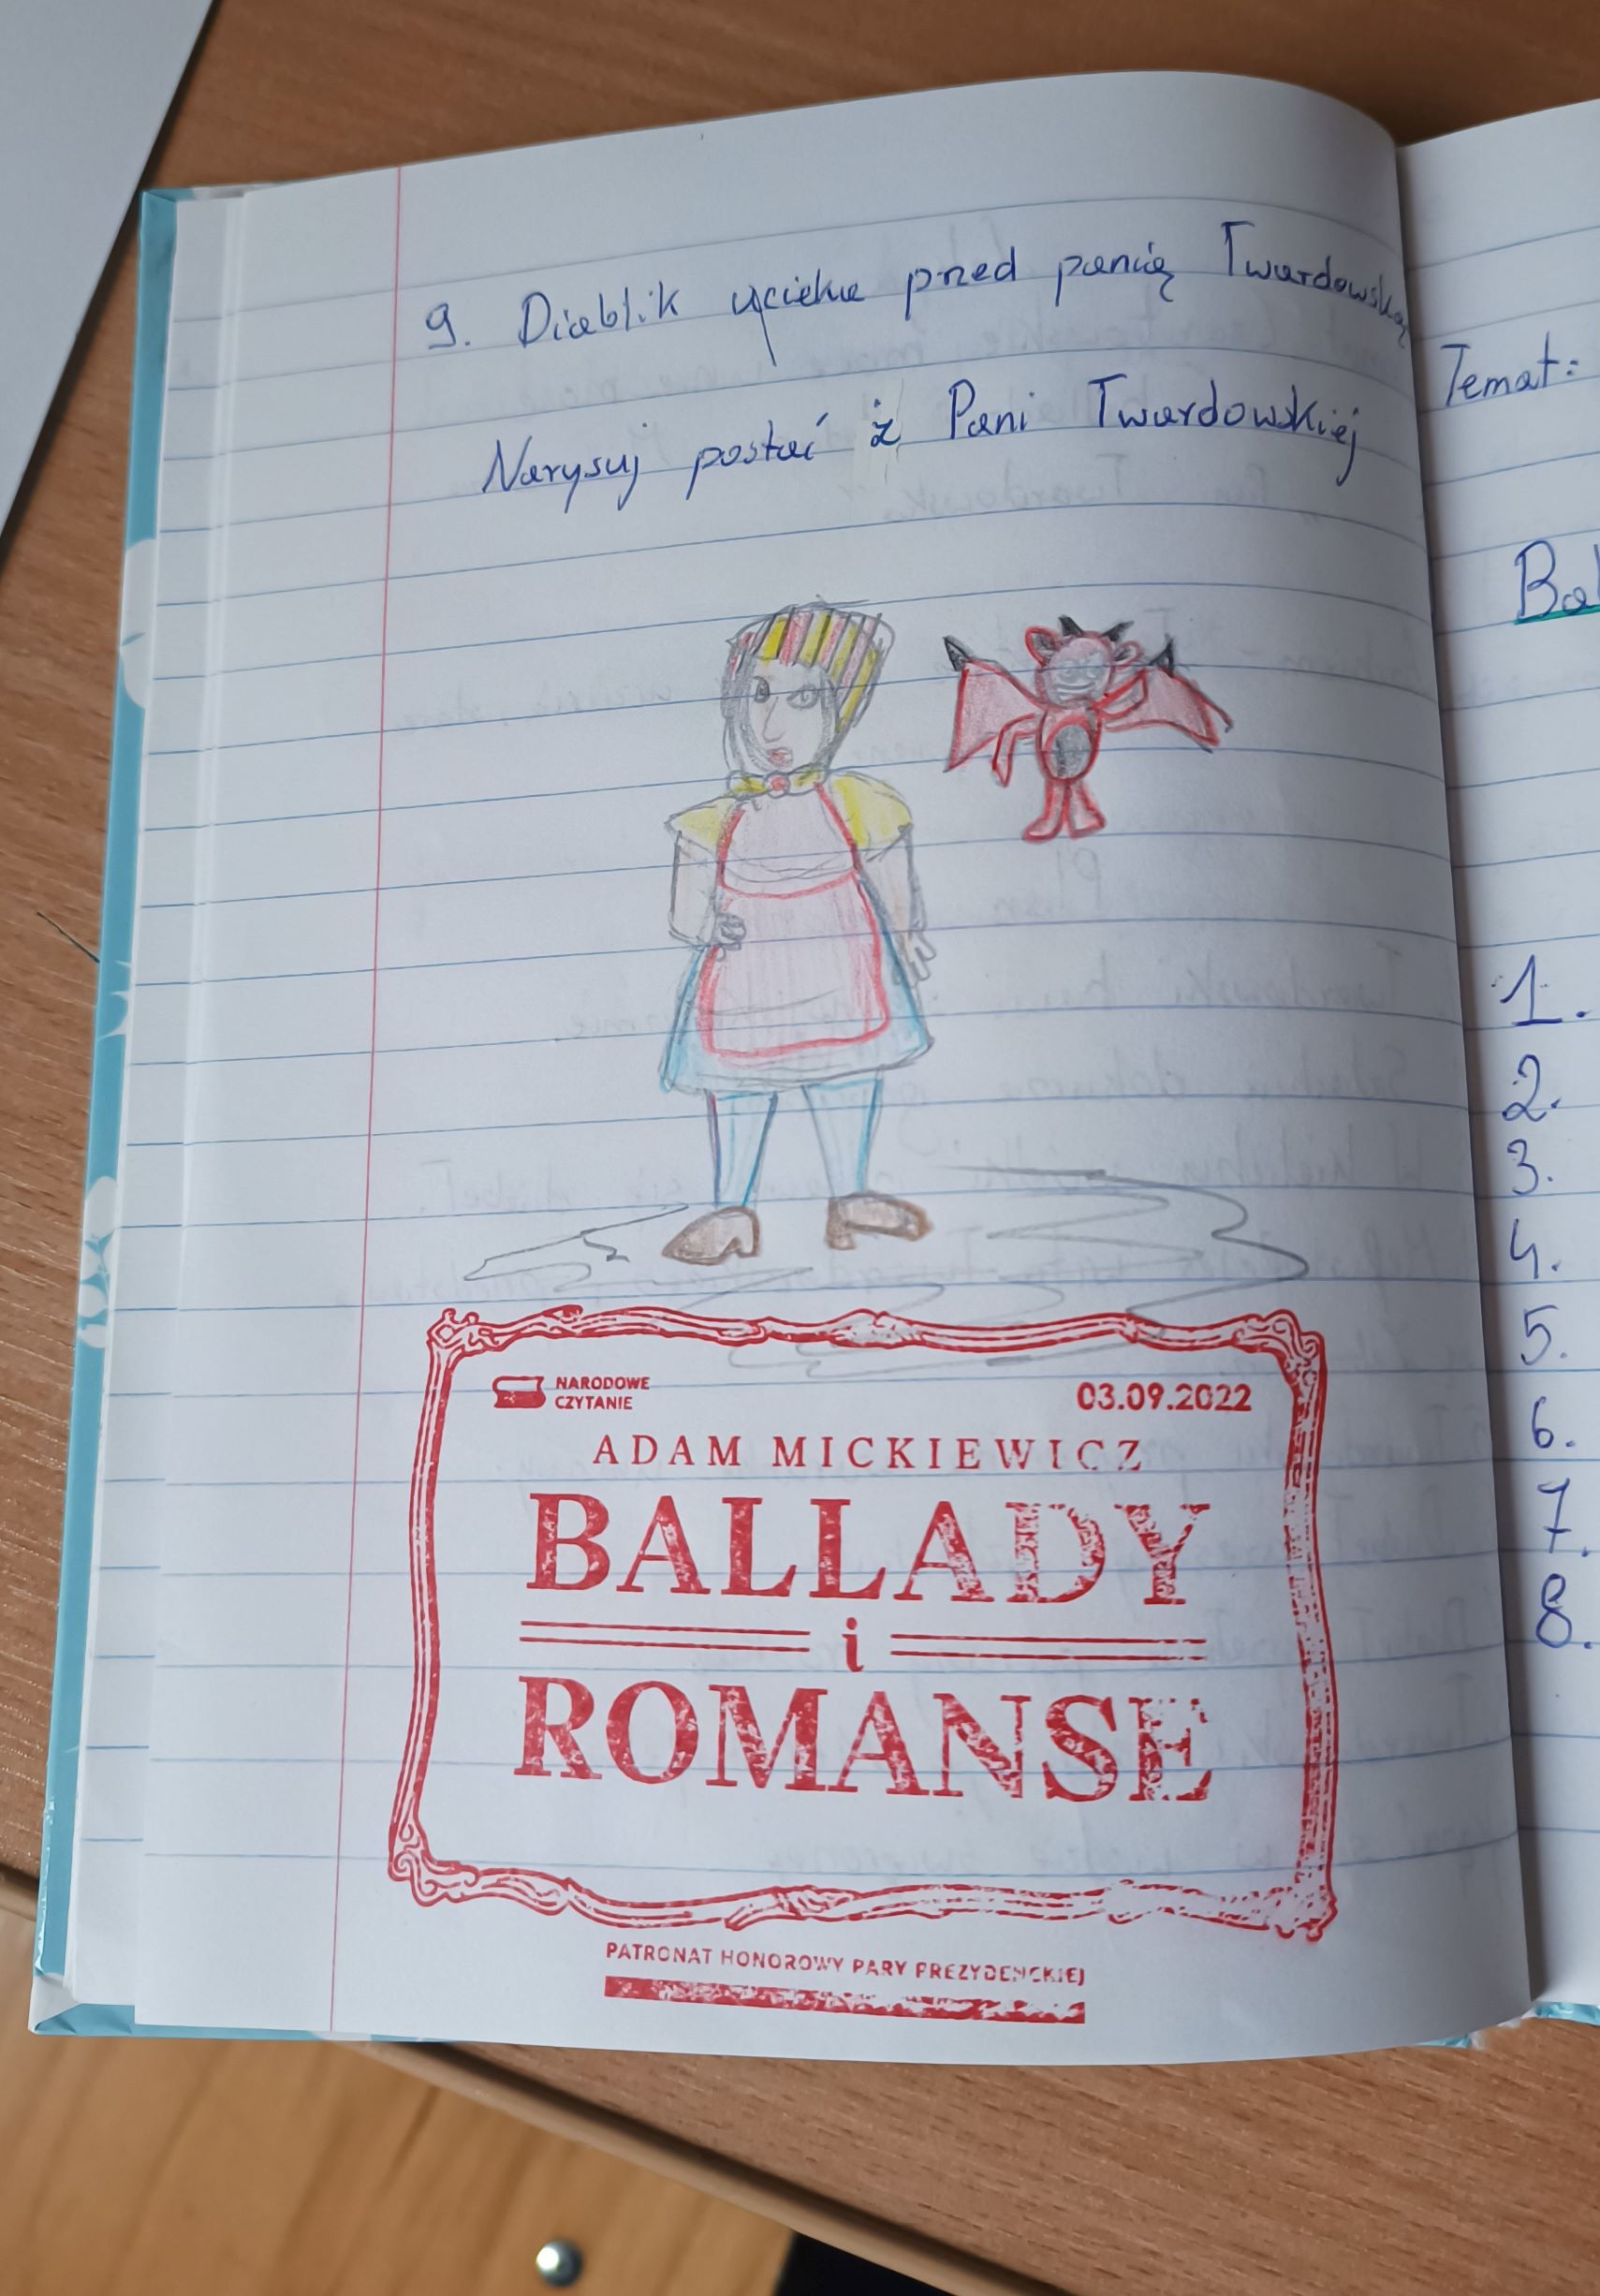 9. Diablik ucieka przed panią Twardowską
Narysuj postać z Pani Twardowskiej
NARODOWE
CZYTANIE
03.09.2022
ADAM MICKIEWICZ
BALLADY
i
ROMANSE
PATRONAT HONOROWY PARY PREZYDENCKIEJ
Temat:
1.
2.
3.
4.
5.
6.
7.
8.